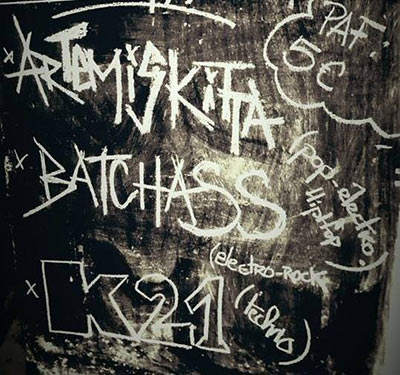 PAF:
5€
x ARTEMISKITTA
(pop-électro,
HipHop)
x BATCHASS
(électro-Rock)
x K21 (techno)